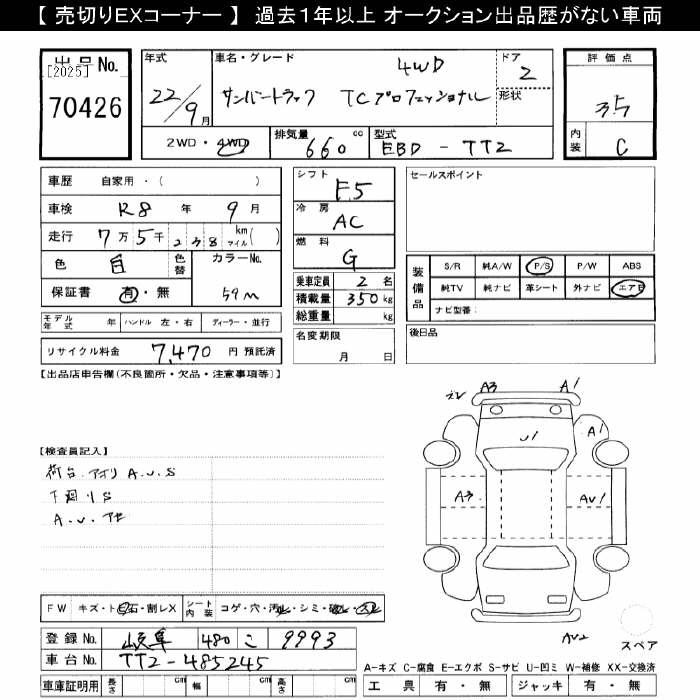 【 売切りEXコーナー 】 過去1年以上 オークション出品歴がない車両
出品 No.
[2025]
70426
年式
22/9月
車名・グレード
4WD
サンバートラック TCプロフェッショナル
ドア
2
形状
評価点
3.5
内装
C
2WD・4WD
排気量 660 cc
型式 EBD - TT2
車歴 自家用・( )
車検 R8 年 9 月
走行 7万5千238 km マイル( )
色 白 色替 カラーNo.
保証書 有・無 59m
モデル年式 年 ハンドル 左・右 ディーラー・並行
リサイクル料金 7,470 円 預託済
シフト F5
冷房 AC
燃料 G
乗車定員 2 名
積載量 350 kg
総重量 kg
名変期限
月 日
セールスポイント
装備品
S/R 純A/W P/S P/W ABS
純TV 純ナビ 革シート 外ナビ エアB
ナビ型番:
後日品
【出品店申告欄(不良箇所・欠品・注意事項等)】
A3 A1
A1
U1
A3 AU1
AU2
スペア
【検査員記入】
荷台.アオリ A.U.S
下廻りS
FW キズ・ト石・割レX シート内装 コゲ・穴・汚レ・シミ
登録No. 岐阜 480 こ 9993
車台No. TT2-485245
車庫証明用 長さ cm 幅 cm 高さ cm
A-キズ C-腐食 E-エクボ S-サビ U-凹ミ W-補修 XX-交換済
工具 有・無 ジャッキ 有・無